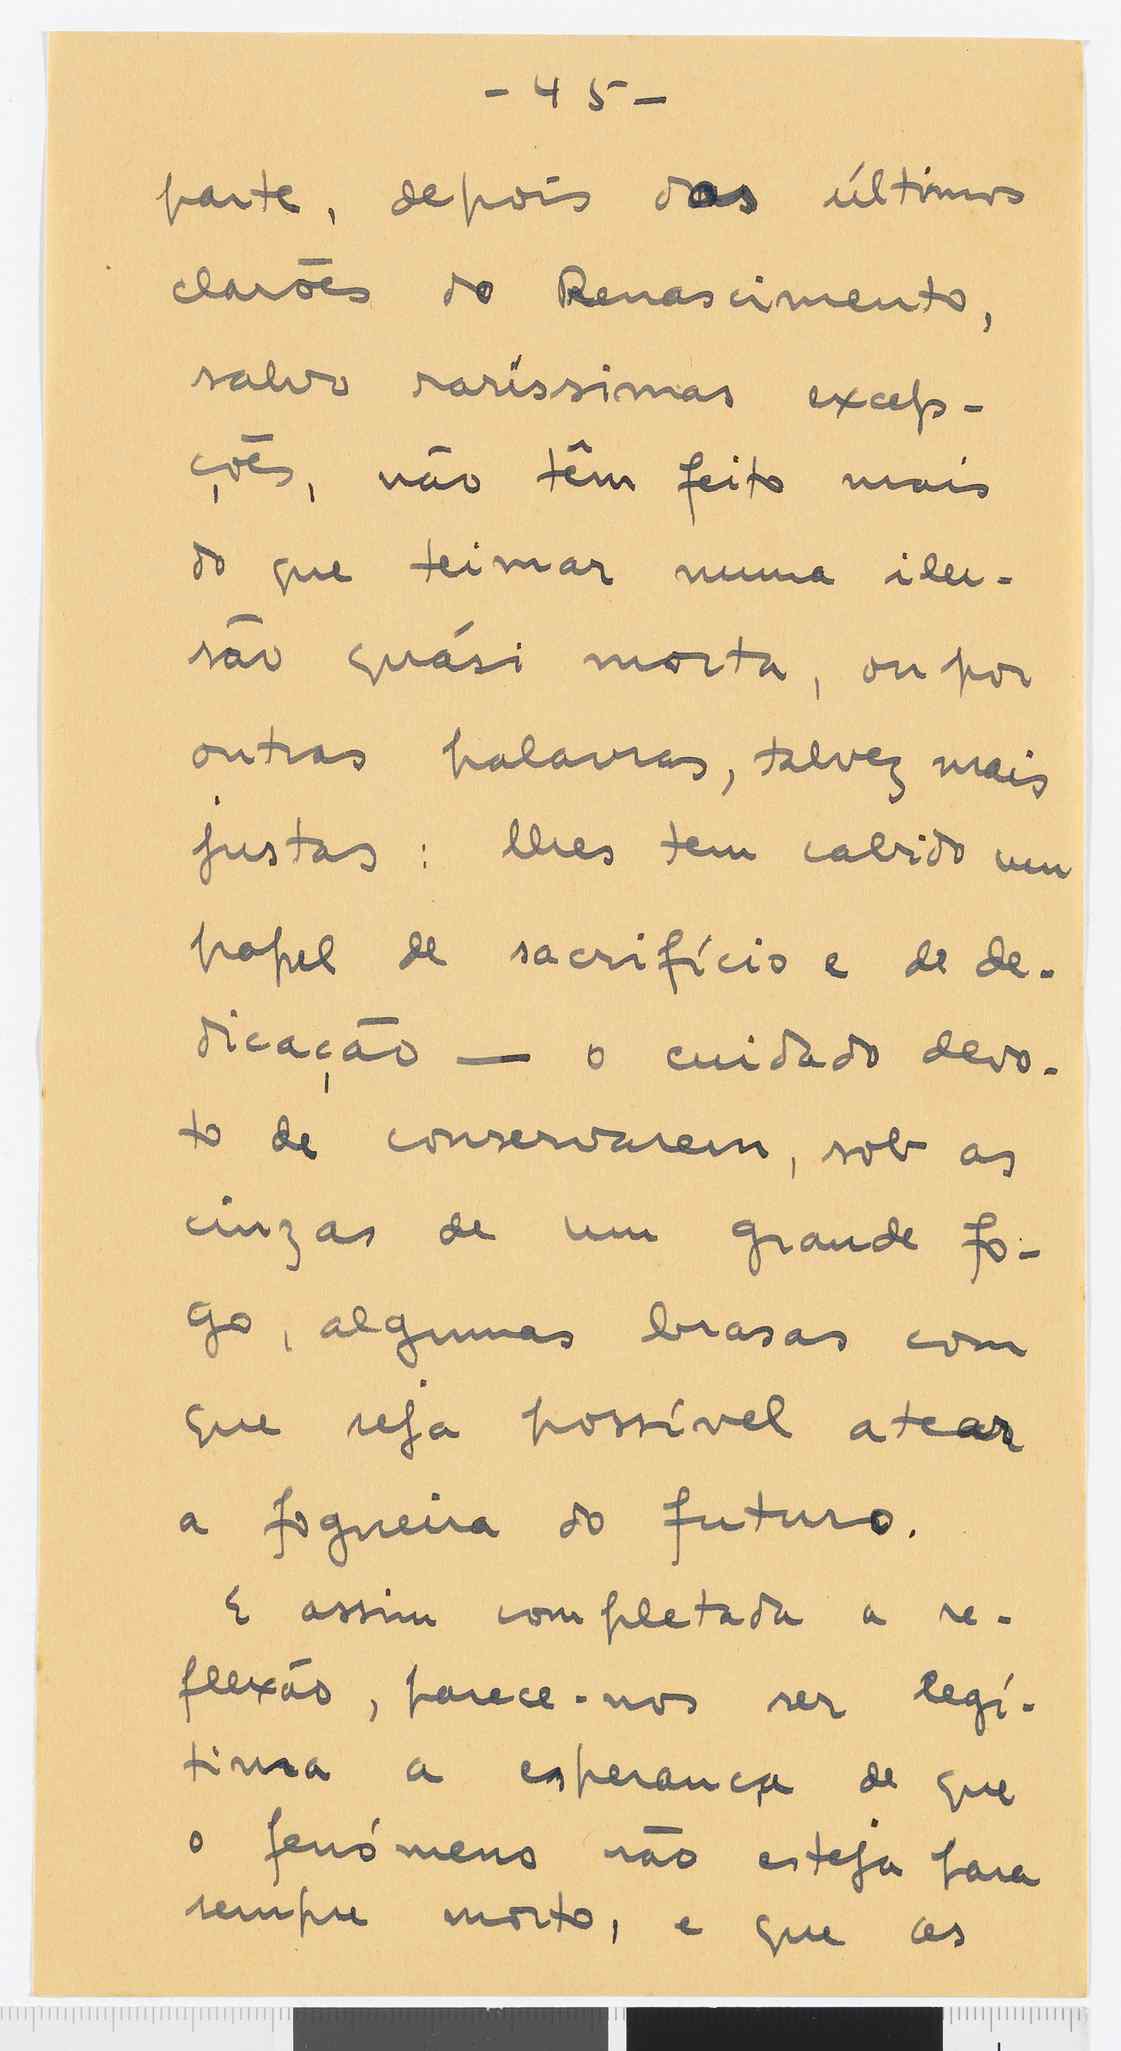 - 45 -
parte, depois dos últimos
clarões do Renascimento,
salvo raríssimas excep-
ções, não têm feito mais
do que teimar numa ilu-
são quási morta, ou por
outras palavras, talvez mais
justas: lhes tem cabido um
papel de sacrifício e de de-
dicação — o cuidado devo-
to de conservarem, sob as
cinzas de um grande fo-
go, algumas brasas com
que seja possível atear
a fogueira do futuro.
E assim completada a re-
flexão, parece-nos ser legí-
tima a esperança de que
o fenómeno não esteja para
sempre morto, e que as